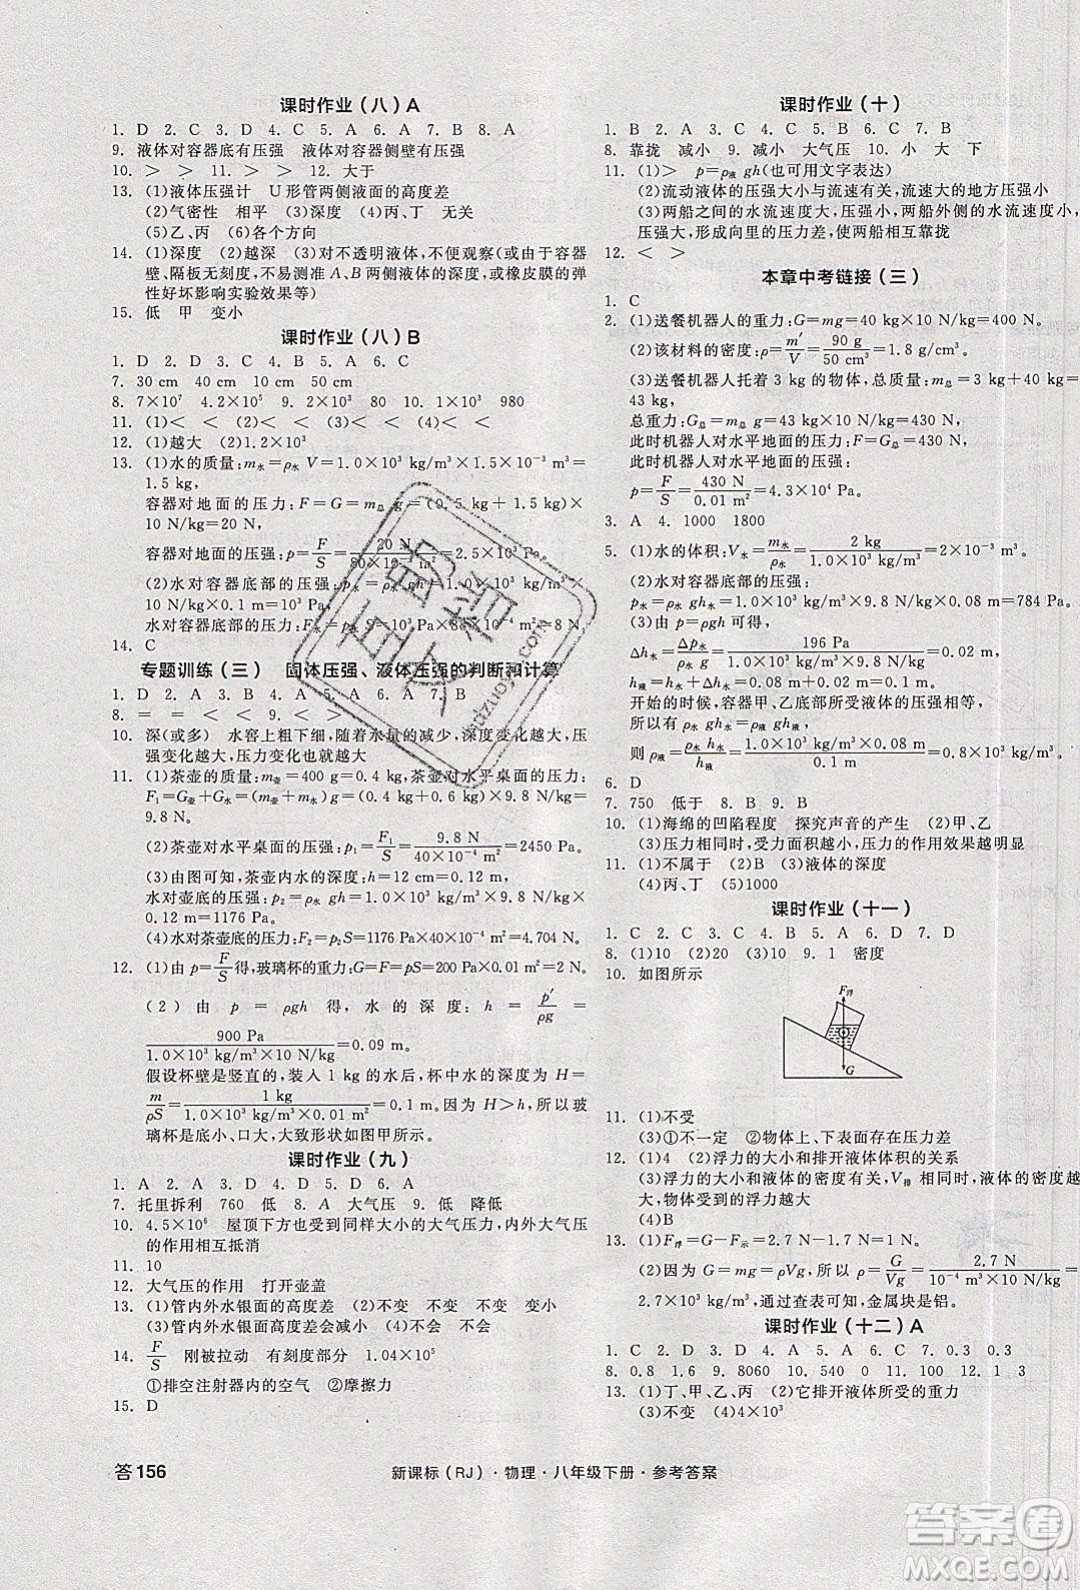 课时作业（八）A
1. D 2. C 3. D 4. C 5. A 6. A 7. B 8. A
9. 液体对容器底有压强 液体对容器侧壁有压强
10. ＞ ＞ 11. ＞ ＞ 12. 大于
13. (1)液体压强计 U 形管两侧液面的高度差
(2)气密性 相平 (3)深度 (4)丙、丁 无关
(5)乙、丙 (6)各个方向
14. (1)深度 (2)越深 (3)对不透明液体,不便观察(或由于容器
壁、隔板无刻度,不易测准 A、B 两侧液体的深度,或橡皮膜的弹
性好坏影响实验效果等)
15. 低 甲 变小
课时作业（八）B
1. D 2. D 3. A 4. B 5. A 6. C
7. 30 cm 40 cm 10 cm 50 cm
8. 7×10⁷ 4.2×10⁵ 9. 1×10³ 10. 1×10³ 980
11. (1)＜ ＜ (2)＜ ＜ (3)＜ (4)＜
12. (1)越大 (2)1.2×10³
13. (1)水的质量:m水=ρ水 V=1.0×10³ kg/m³×1.5×10⁻³ m³=
1.5 kg,
容器对地面的压力:F=G=m总 g=(0.5 kg+1.5 kg)×
10 N/kg=20 N,
容器对地面的压强:p=F/S=20 N/(80×10⁻⁴ m²)=2.5×10³ Pa。
(2)水对容器底部的压强:p水=ρ水 gh=1.0×10³ kg/m³×
10 N/kg×0.1 m=1×10³ Pa,
水对容器底部的压力:F水=p水S=1×10³ Pa×80×10⁻⁴ m²=8 N。
14. C
专题训练（三） 固体压强、液体压强的判断和计算
1. D 2. A 3. B 4. C 5. A 6. A 7. B
8. = = ＜ ＜ 9. ＜ ＞
10. 深(或多) 水窖上粗下细,随着水量的减少,深度变化越大,压
强变化越大,压力变化也就越大
11. (1)茶壶的质量:m壶=400 g=0.4 kg,茶壶对水平桌面的压力:
F₁=G壶+G水=(m壶+m水)g=(0.4 kg+0.6 kg)×9.8 N/kg=
9.8 N。
(2)茶壶对水平桌面的压强:p₁=F₁/S=9.8 N/(40×10⁻⁴ m²)=2450 Pa。
(3)由图可知,茶壶内水的深度:h=12 cm=0.12 m,
水对茶壶底的压强:p₂=ρ水 gh=1.0×10³ kg/m³×9.8 N/kg
×0.12 m=1176 Pa。
(4)水对茶壶底的压力:F₂=p₂S=1176 Pa×40×10⁻⁴ m²=4.704 N。
12. (1)由 p=F/S得,玻璃杯的重力:G=F=pS=200 Pa×0.01 m²=2 N。
(2)由 p=ρgh 得,水的深度:h=p′/ρg=
900 Pa/(1.0×10³ kg/m³×10 N/kg)=0.09 m。
假设杯壁是竖直的,装入 1 kg 的水后,杯中水的深度 H=
m/ρS=1 kg/(1.0×10³ kg/m³×0.01 m²)=0.1 m。因为 H＞h,所以玻
璃杯是底小、口大,大致形状如图甲所示。
课时作业（九）
1. A 2. A 3. C 4. D 5. D 6. A
7. 托里拆利 760 低 8. A 大气压 9. 低 降低
10. 4.5×10⁶ 屋顶下方也受到同样大小的大气压力,内外大气压
的作用相互抵消
11. 10
12. 大气压的作用 打开壶盖
13. (1)管内外水银面的高度差 (2)不变 不变 不变 变小
(3)管内外水银面高度差会减小 (4)不变
14. F/S 刚被拉动 有刻度部分 1.04×10⁵
①排空注射器内的空气 ②摩擦力
15. D
课时作业（十）
1. B 2. B 3. A 4. A 5. C 6. C 7. B
8. 靠拢 减小 9. 减小 大气压 10. 小 大 下
11. (1)＞ p=ρ液 gh(也可用文字表达)
(2)流动液体的压强大小与流速有关,流速大的地方压强小
(3)两船之间的水流速度大,压强小,两船外侧的水流速度小,
压强大,形成向内的压力差,使两船靠拢
12. ＜ ＞
本章中考链接（三）
1. C
2. (1)送餐机器人的重力:G=mg=40 kg×10 N/kg=400 N。
(2)该材料的密度:ρ=m′/V=90 g/50 cm³=1.8 g/cm³。
(3)送餐机器人托着 3 kg 的物体,总质量:m总=3 kg+40 kg=
43 kg,
总重力:G总=m总 g=43 kg×10 N/kg=430 N,
此时机器人对水平地面的压力:F=G总=430 N,
此时机器人对水平地面的压强:
p=F/S=430 N/0.01 m²=4.3×10⁴ Pa。
3. A 4. 1000 1800
5. (1)水的体积:V水=m水/ρ水=2 kg/(1.0×10³ kg/m³)=2×10⁻³ m³。
(2)水对容器底部的压强:
p水=ρ水 gh水=1.0×10³ kg/m³×9.8 N/kg×0.08 m=784 Pa。
(3)由 p=ρgh 可得,
Δh水=Δp水/ρ水g=196 Pa/(1.0×10³ kg/m³×9.8 N/kg)=0.02 m,
h液=h水+Δh水=0.08 m+0.02 m=0.1 m,
开始的时候,容器甲、乙底部所受压强相等,
所以有 ρ水 gh水=ρ液 gh液,
则 ρ液=ρ水 h水/h液=1.0×10³ kg/m³×0.08 m/0.1 m=0.8×10³ kg/m³。
6. D
7. 750 低于 8. B 9. B
10. (1)海绵的凹陷程度 探究声音的产生 (2)甲、乙
(3)压力相同时,受力面积越小,压力的作用效果越明显
11. (1)不属于 (2)B (3)液体的深度
(4)丙、丁 (5)1000
课时作业（十一）
1. C 2. C 3. C 4. B 5. A 6. D 7. D
8. (1)10 (2)20 (3)10 9. 1 密度
10. 如图所示
F浮
G
11. (1)不受
(3)①不一定 ②物体上、下表面存在压力差
12. (1)4 (2)浮力的大小和排开液体体积的关系
(3)浮力的大小和液体的密度有关,V排 相同时,液体的密度
越大,物体受到的浮力越大
(4)B
13. (1)F浮=G−F示=2.7 N−1.7 N=1 N。
(2)因为 G=mg=ρVg,所以 ρ=G/Vg=2.7 N/(10⁻⁴ m³×10 N/kg)=
2.7×10³ kg/m³,通过查表可知,金属块是铝。
课时作业（十二）A
1. C 2. D 3. D 4. A 5. D 6. D 7. 0.3 0.3
8. 0.8 1.6 9. 8060 10. 540 0 11. 100 12. 1
13. (1)丁、甲、乙、丙 (2)它排开液体所受的重力
(3)不变 (4)4×10³
答156
新课标（RJ）·物理·八年级下册·参考答案
答案圈
MXQE.COM